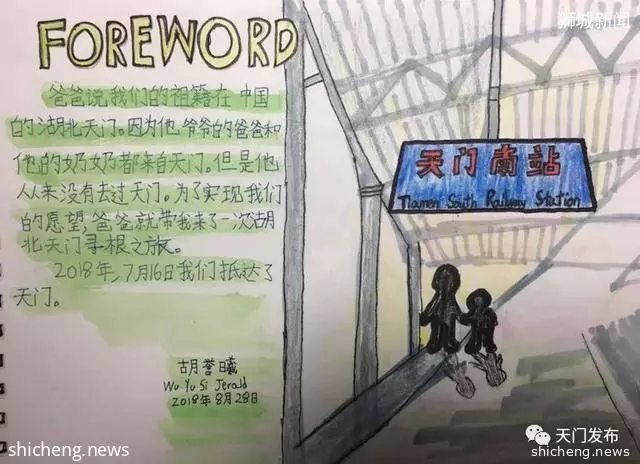 狮城新闻
FOREWORD
爸爸说我们的祖籍在中国
的湖北天门。因为他爷爷的爸爸和
他的奶奶都来自天门。但是他
从来没有去过天门。为了实现我们
的愿望,爸爸就带我来了一次湖
北天门寻根之旅。
2018年,7月16日我们抵达了
天门。
胡誉曦
Wu Yu Si Jerald
2018年8月28日
天门南站
Tianmen South Railway Station
天门发布
shicheng.news
shicheng.news